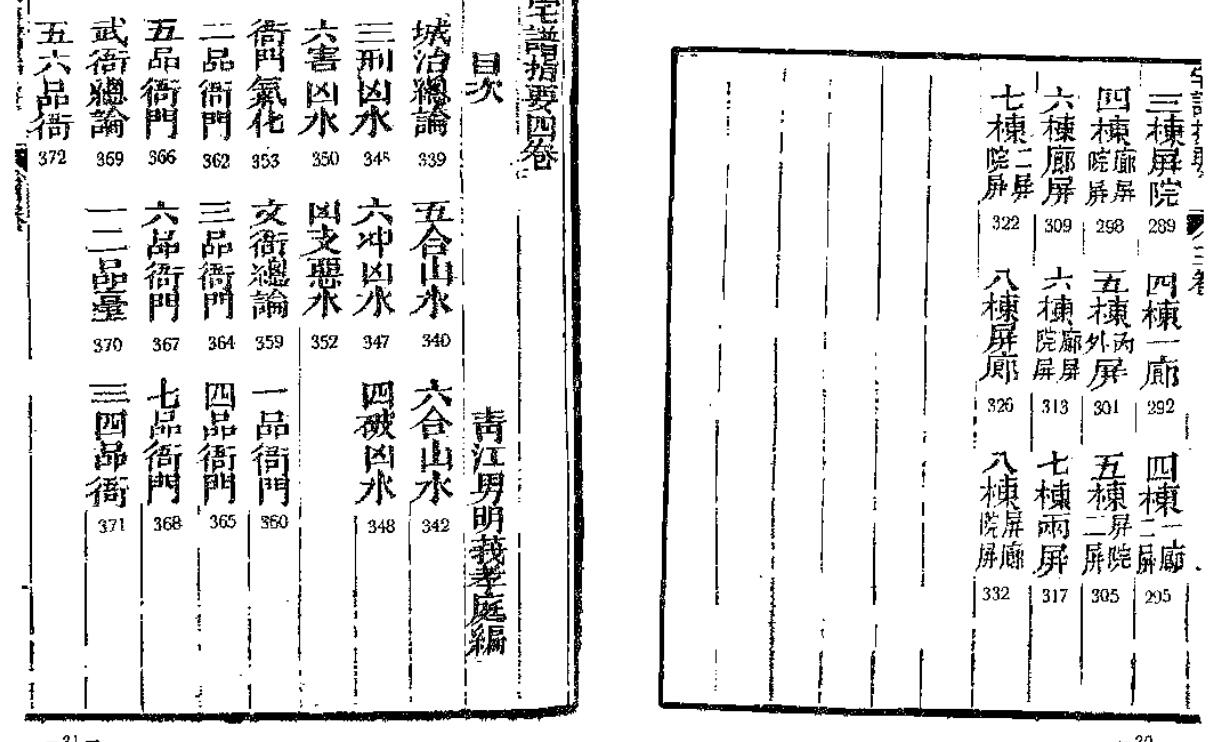 三棟屏院 289 四棟一廊 292 四棟一廊二屏 295
四棟廊屏院屏 298 五棟內外屏 301 五棟屏院二屏 305
六棟廊屏 309 六棟廊屏院屏 313 七棟兩屏 317
七棟二屏院屏 322 八棟屏廊 326 八棟屏廊院屏 332
30
宅譜指要四卷
目次 青江男明莪孝庭編
城治總論 339 五合山水 340 六合山水 342
三刑凶水 345 六冲凶水 347 四破凶水 348
六害凶水 350 凶支惡水 352
衙門氣化 353 文衙總論 359 一品衙門 360
二品衙門 362 三品衙門 364 四品衙門 365
五品衙門 366 六品衙門 367 七品衙門 368
武衙總論 369 一二品臺 370 三四品衙 371
五六品衙 372
—31—